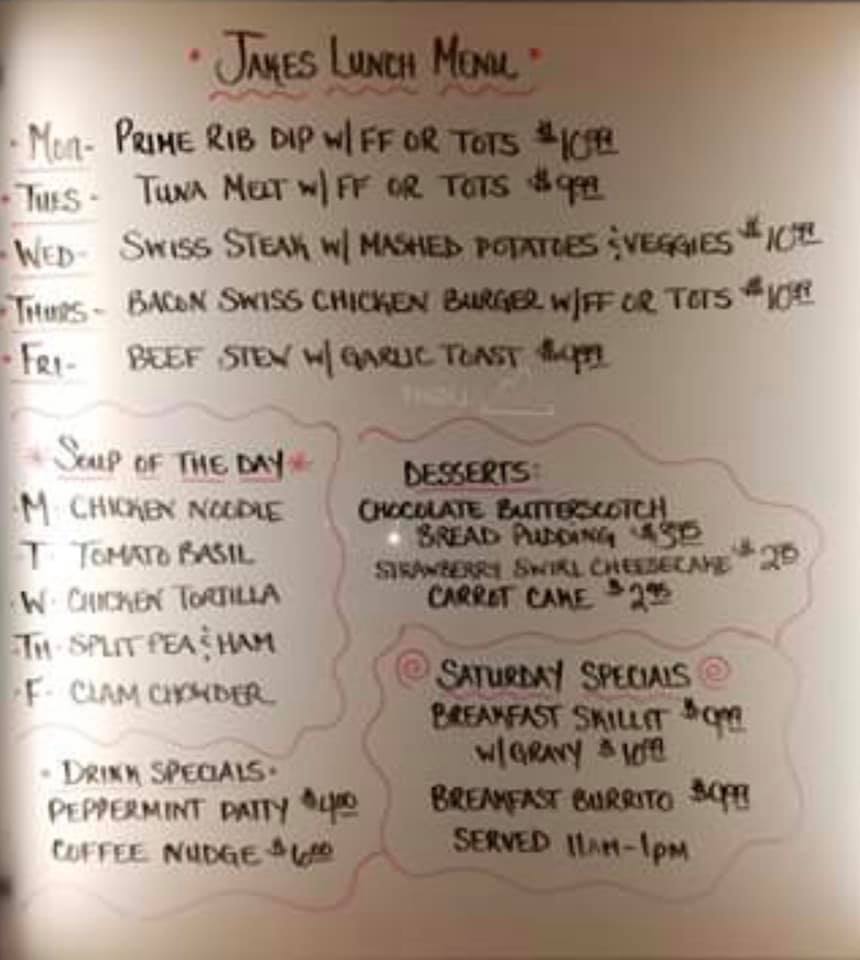 • JAKES LUNCH MENU •
• MON- PRIME RIB DIP W/ FF OR TOTS $10.99
• TUES - TUNA MELT W/ FF OR TOTS $9.99
• WED- SWISS STEAK W/ MASHED POTATOES & VEGGIES $10.99
• THURS - BACON SWISS CHICKEN BURGER W/FF OR TOTS $10.99
• FRI- BEEF STEW W/ GARLIC TOAST $9.99
* SOUP OF THE DAY *
M • CHICKEN NOODLE
T • TOMATO BASIL
• W • CHICKEN TORTILLA
TH • SPLIT PEA & HAM
• F • CLAM CHOWDER
• DRINK SPECIALS •
PEPPERMINT PATTY $4.00
COFFEE NUDGE $6.00
DESSERTS:
CHOCOLATE BUTTERSCOTCH
BREAD PUDDING
STRAWBERRY SWIRL CHEESECAKE
CARROT CAKE $2.95
SATURDAY SPECIALS
BREAKFAST SKILLET $9.99
W/ GRAVY $10.99
BREAKFAST BURRITO $9.99
SERVED 11AM-1PM